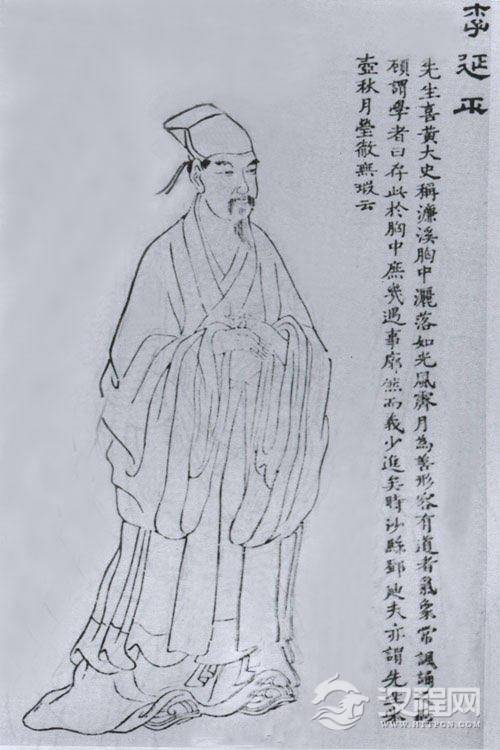 李延平
先生喜黃大史稱濂溪胸中灑落如光風霽月為善形容有道者氣象常諷誦
顧謂學者曰存此於胸中庶幾遇事廓然而義少進矣時沙縣鄧迪夫亦謂先生
壺秋月瑩徹無瑕云
汉程网
HTTPCN.COM